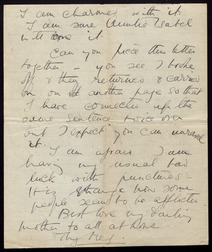 I am charmed with it.
I am sure Auntie Isabel
will love it.
Can you piece this letter
together – you see I broke
off & then returned & carried
on on at another page so that
I have connected up the
same sentence twice over
but I expect you can unravel
it. I am afraid I am
having my usual bad
luck with punctures.
It is strange how some
people seem to be afflicted.
Best love my darling
mother to all at home
Thy